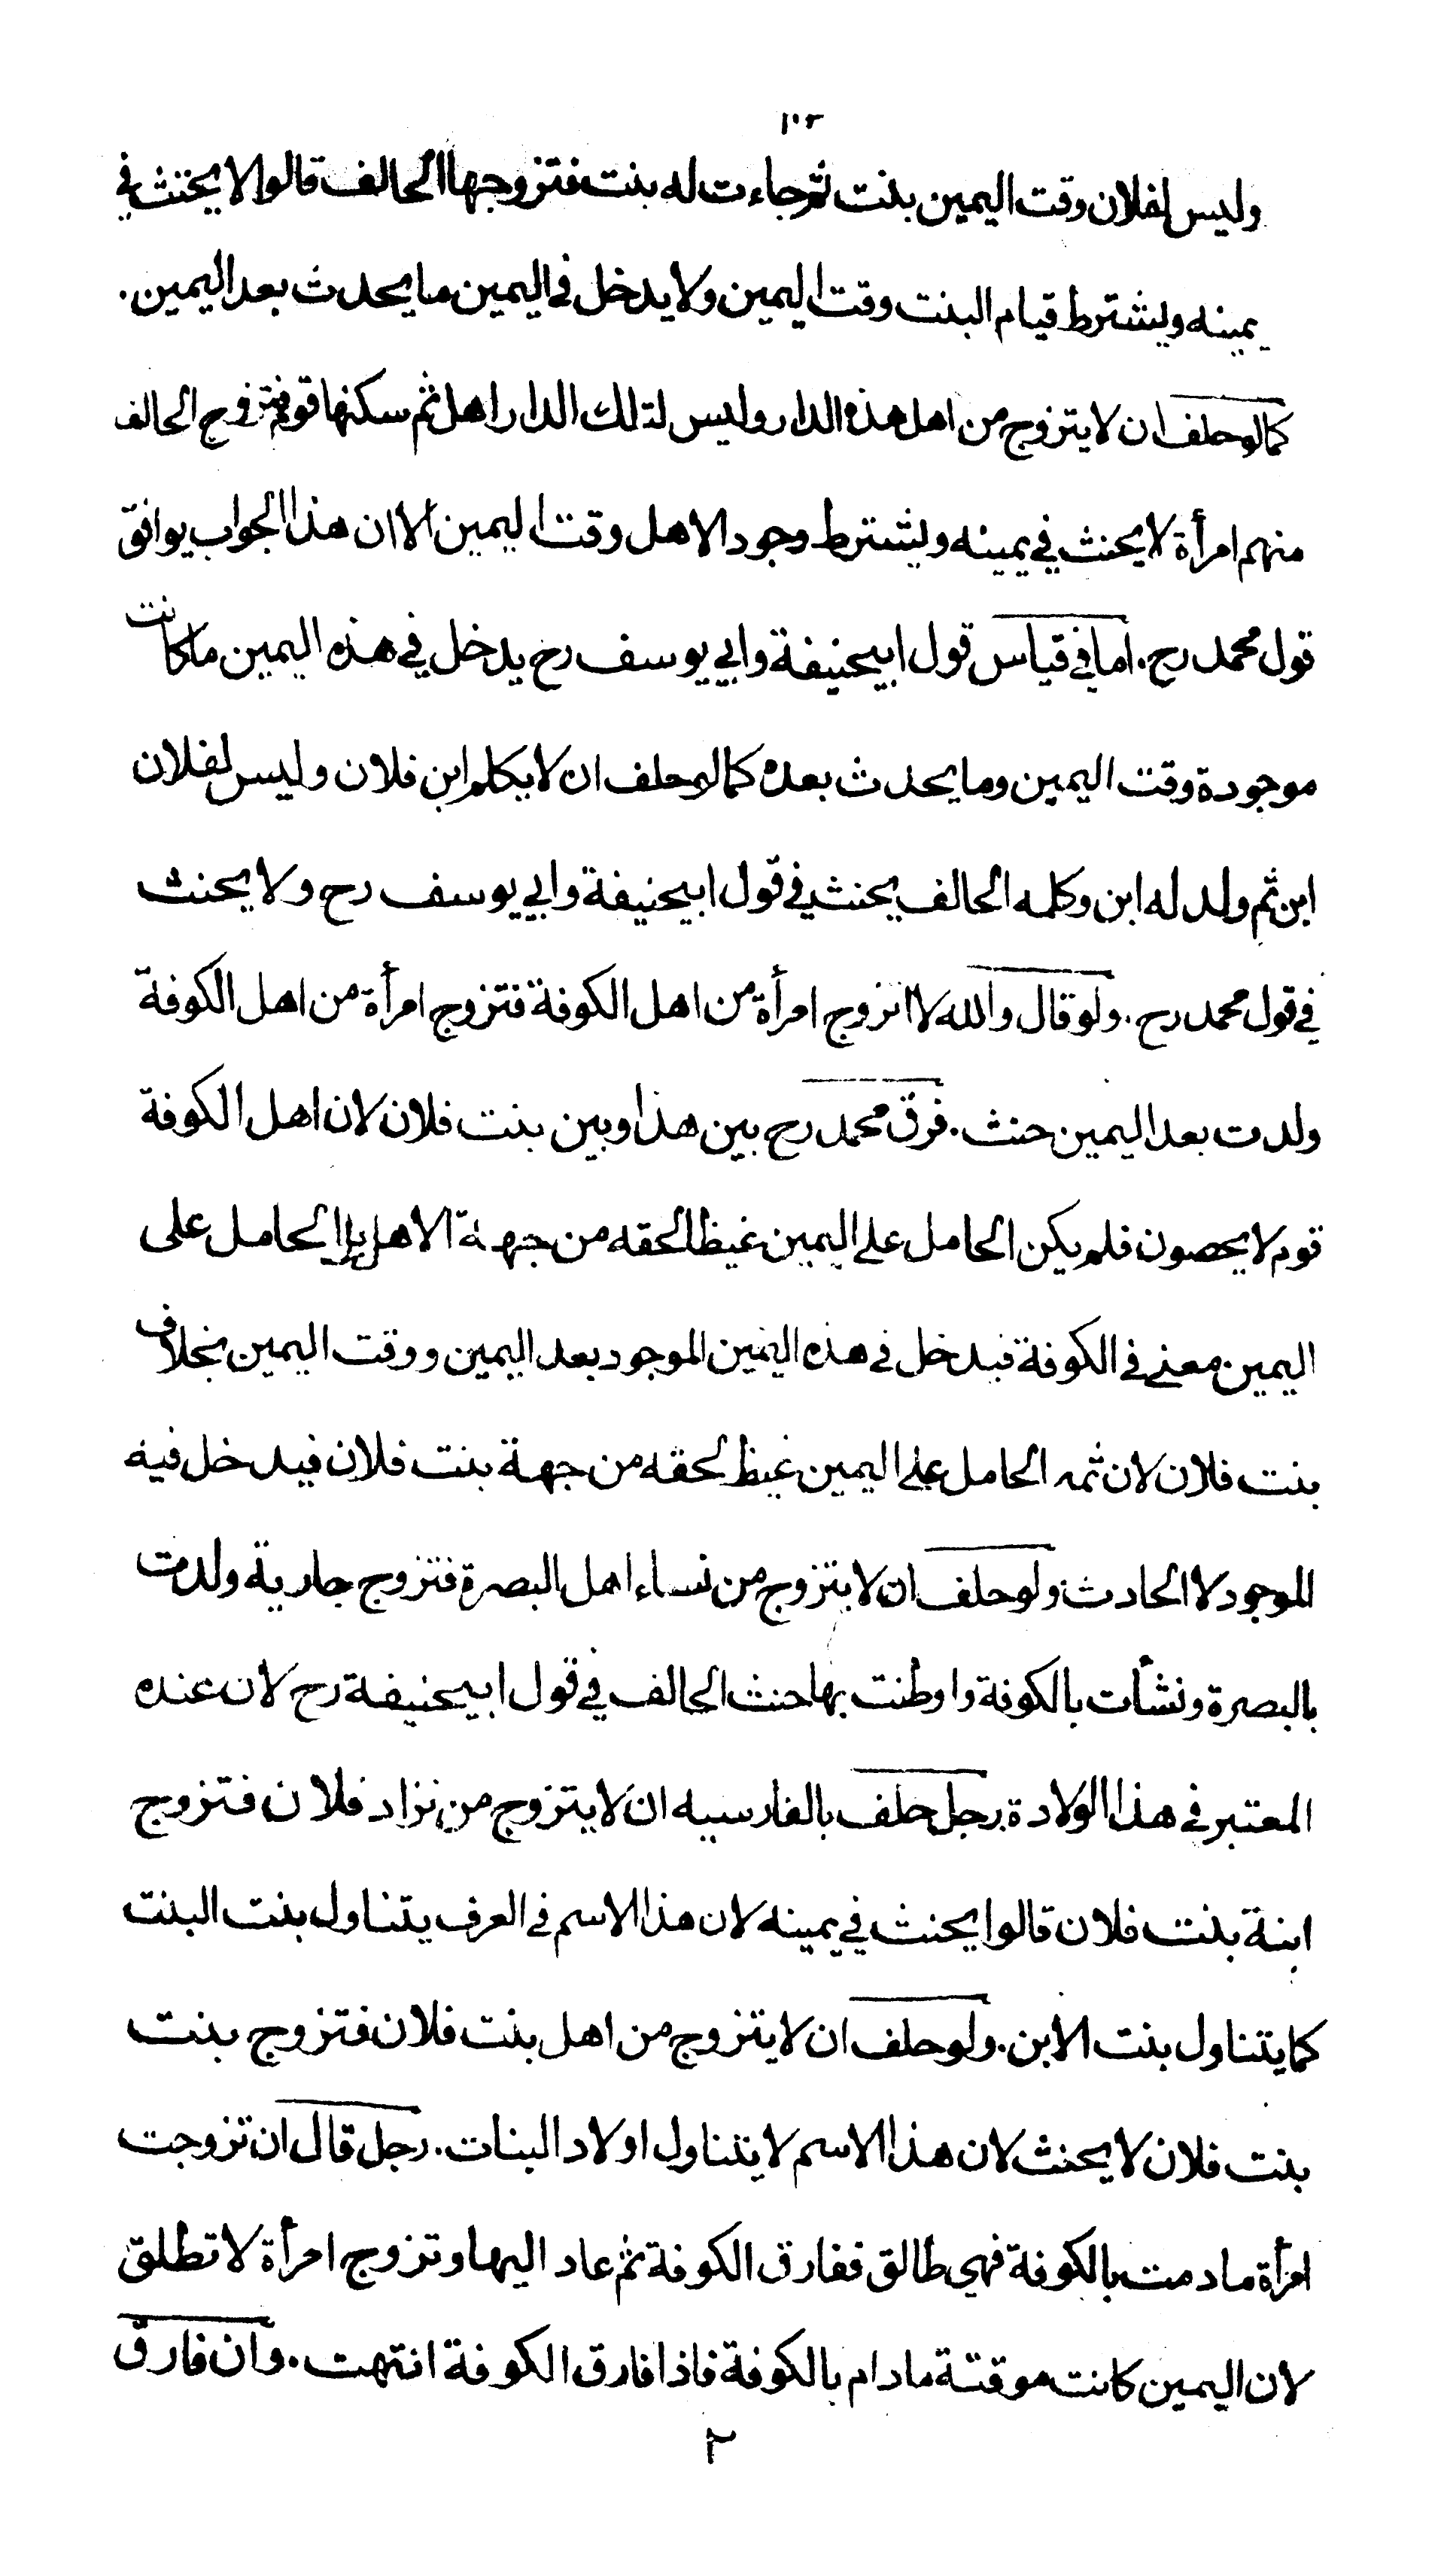 ١٠٢
وليس لفلان وقت اليمين بنت ثم جاءت له بنت فتزوجها الحالف قالوا لا يحنث في
يمينه ويشترط قيام البنت وقت اليمين ولا يدخل في اليمين ما يحدث بعد اليمين .
كما لو حلف ان لا يتزوج من اهل هذه الدار وليس لتلك الدار اهل ثم سكنها قوم فتزوج الحالف
منهم امرأة لا يحنث في يمينه ويشترط وجود الاهل وقت اليمين الا ان هذا الجواب يوافق
قول محمد رح . اما في قياس قول ابيحنيفة وابي يوسف رح يدخل في هذه اليمين ما كانت
موجودة وقت اليمين وما يحدث بعده كما لو حلف ان لا يكلم ابن فلان وليس لفلان
ابن ثم ولد له ابن وكلمه الحالف يحنث في قول ابيحنيفة وابي يوسف رح ولا يحنث
في قول محمد رح . ولو قال والله لا اتزوج امرأة من اهل الكوفة فتزوج امرأة من اهل الكوفة
ولدت بعد اليمين حنث . فرق محمد رح بين هذا وبين بنت فلان لان اهل الكوفة
قوم لا يحصون فلم يكن الحامل على اليمين غيظا لحقه من جهة الاهل بل الحامل على
اليمين معنى في الكوفة فيدخل في هذه اليمين الموجود بعد اليمين ووقت اليمين بخلاف
بنت فلان لان ثمه الحامل على اليمين غيظ لحقه من جهة بنت فلان فيدخل فيه
الموجود لا الحادث ولو حلف ان لا يتزوج من نساء اهل البصرة فتزوج جارية ولدت
بالبصرة ونشأت بالكوفة واوطنت بها حنث الحالف في قول ابيحنيفة رح لان عنده
المعتبر في هذا الولادة . رجل حلف بالفارسيه ان لا يتزوج من نزاد فلان فتزوج
ابنة بنت فلان قالوا يحنث في يمينه لان هذا الاسم في العرف يتناول بنت البنت
كما يتناول بنت الابن . ولو حلف ان لا يتزوج من اهل بنت فلان فتزوج بنت
بنت فلان لا يحنث لان هذا الاسم لا يتناول اولاد البنات . رجل قال ان تزوجت
امرأة ما دمت بالكوفة فهي طالق ففارق الكوفة ثم عاد اليها وتزوج امرأة لا تطلق
لان اليمين كانت موقتة مادام بالكوفة فاذا فارق الكوفة انتهت . وان فارق